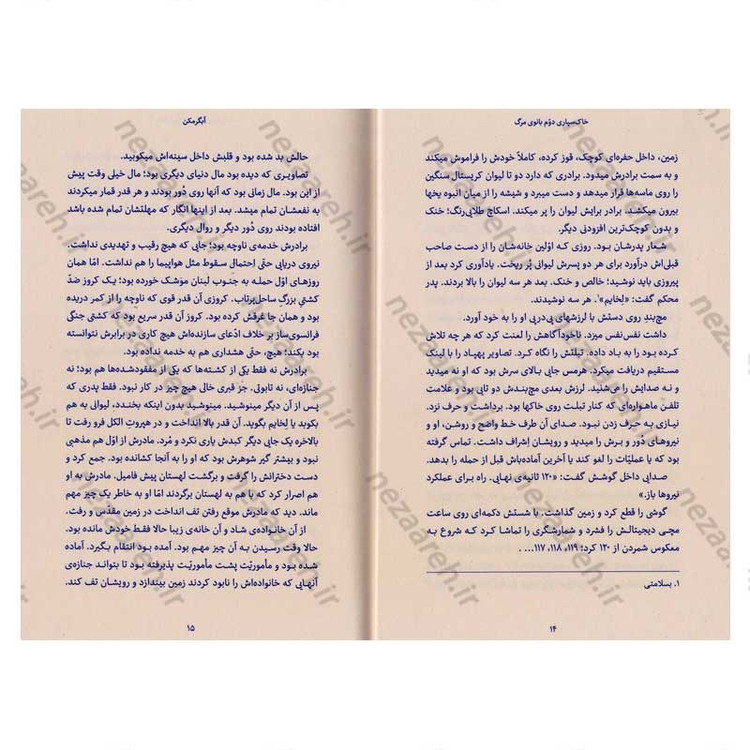 خاک‌سپاری دوّم بانوی مرگ
زمین، داخل حفره‌ای کوچک، قوز کرده، کاملاً خودش را فراموش میکند
و به سمت برادرش میدود. برادری که دارد دو تا لیوان کریستال سنگین
را روی ماسه‌ها قرار میدهد و دست میبرد و شیشه را از میان انبوه یخها
بیرون میکشد. برادر برایش لیوان را پر میکند. اسکاچ طلایی‌رنگ؛ خنک
و بدون کوچک‌ترین افزودنی دیگر.
شعار پدرشان بود. روزی که اوّلین خانه‌شان را از دست صاحب
قبلی‌اش درآورد برای هر دو پسرش لیوانی پُر ریخت. یادآوری کرد بعد از
پیروزی باید نوشید؛ خالص و خنک. بعد هر سه لیوان را بالا بردند. پدر
محکم گفت: «لِخایم»۱. هر سه نوشیدند.
مچ‌بندِ روی دستش با لرزشهای پی‌درپی او را به خود آورد.
داشت نفس‌نفس میزد. ناخودآگاهش را لعنت کرد که هر چه تلاش
کرده بود را به باد داده. تبلتش را نگاه کرد. تصاویر پهپاد را با لینک
مستقیم دریافت میکرد. هرمس جایی بالای سرش بود که او نه میدید
و نه صدایش را می‌شنید. لرزش بعدی مچ‌بندش دو تایی بود و علامت
تلفن ماهواره‌ای که کنار تبلت روی خاکها بود. برداشت و حرف نزد.
نیازی به حرف زدن نبود. صدای آن طرف خط واضح و روشن، او و
نیروهای دور و برش را میدید و رویشان اِشراف داشت. تماس گرفته
بود که یا عملیّات را لغو کند یا آخرین آماده‌باش قبل از حمله را بدهد.
صدایی داخل گوشش گفت: «۱۲۰ ثانیه‌ی نهایی. راه برای عملکرد
نیروها باز.»
گوشی را قطع کرد و زمین گذاشت. با شستش دکمه‌ای روی ساعت
مچی دیجیتالش را فشرد و شمارشگری را تماشا کرد که شروع به
معکوس شمردن از ۱۲۰ کرد؛ ۱۱۹، ۱۱۸، ۱۱۷، ... .
۱. بسلامتی
۱۴
آبگرمکن
حالش بد شده بود و قلبش داخل سینه‌اش میکوبید.
تصاویری که دیده بود مال دنیای دیگری بود؛ مال خیلی وقت پیش
از این بود. مال زمانی بود که آنها روی دُور بودند و هر قدر قمار میکردند
به نفعشان تمام میشد. بعد از اینها انگار که مهلتشان تمام شده باشد
افتاده بودند روی دُور دیگر و روال دیگری.
برادرش خدمه‌ی ناوچه بود؛ جایی که هیچ رقیب و تهدیدی نداشت.
نیروی دریایی حتّی اِحتمال سقوط مثل هواپیما را هم نداشت. امّا همان
روزهای اوّل حمله به جنوب لبنان موشک خورده بود؛ یک کروز ضدّ
کشتیِ بزرگِ ساحل‌پرتاب. کروزی آن قدر قوی که ناوچه را از کمر دریده
بود و همان جا غرقش کرده بود. کروز آن قدر سریع بود که کشتی جنگی
فرانسوی‌ساز بر خلاف ادّعای سازنده‌اش هیچ کاری در برابرش نتوانسته
بود بکند؛ هیچ، حتّی هشداری هم به خدمه نداده بود.
برادرش نه فقط یکی از کشته‌ها که یکی از مفقودشده‌ها هم بود؛ نه
جنازه‌ای، نه تابوتی. جز قبری خالی هیچ چیز در کار نبود. فقط پدری که
پس از آن دیگر مینوشید. مینوشید بدون اینکه بخندد، لیوانی به هم
بکوبد یا لِخایم بگوید. آن قدر بالا انداخت و در هپروت الکل فرو رفت تا
بالاخره یک جایی دیگر کبدش یاری نکرد و مُرد. مادرش از اوّل هم مذهبی
نبود و بیشتر گیر شوهرش بود که او را به آنجا کشانده بود. جمع کرد و
دست دخترانش را گرفت و برگشت لهستان پیش فامیل. مادرش به او
هم اصرار کرد که با هم به لهستان برگردند امّا او به خاطر یک چیز مهم
ماند. دید که مادرش موقع رفتن تف انداخت در زمین مقدّس و رفت.
از آن خانواده‌ی شاد و آن خانه‌ی زیبا حالا فقط خودش مانده بود.
حالا وقت رسیدن به آن چیز مهم بود. آمده بود انتقام بگیرد. آماده
شده بود و مأموریّت پشت مأموریّت پذیرفته بود تا بتواند جنازه‌ی
آنهایی که خانواده‌اش را نابود کردند زمین بیندازد و رویشان تف کند.
۱۵
nezaareh.ir